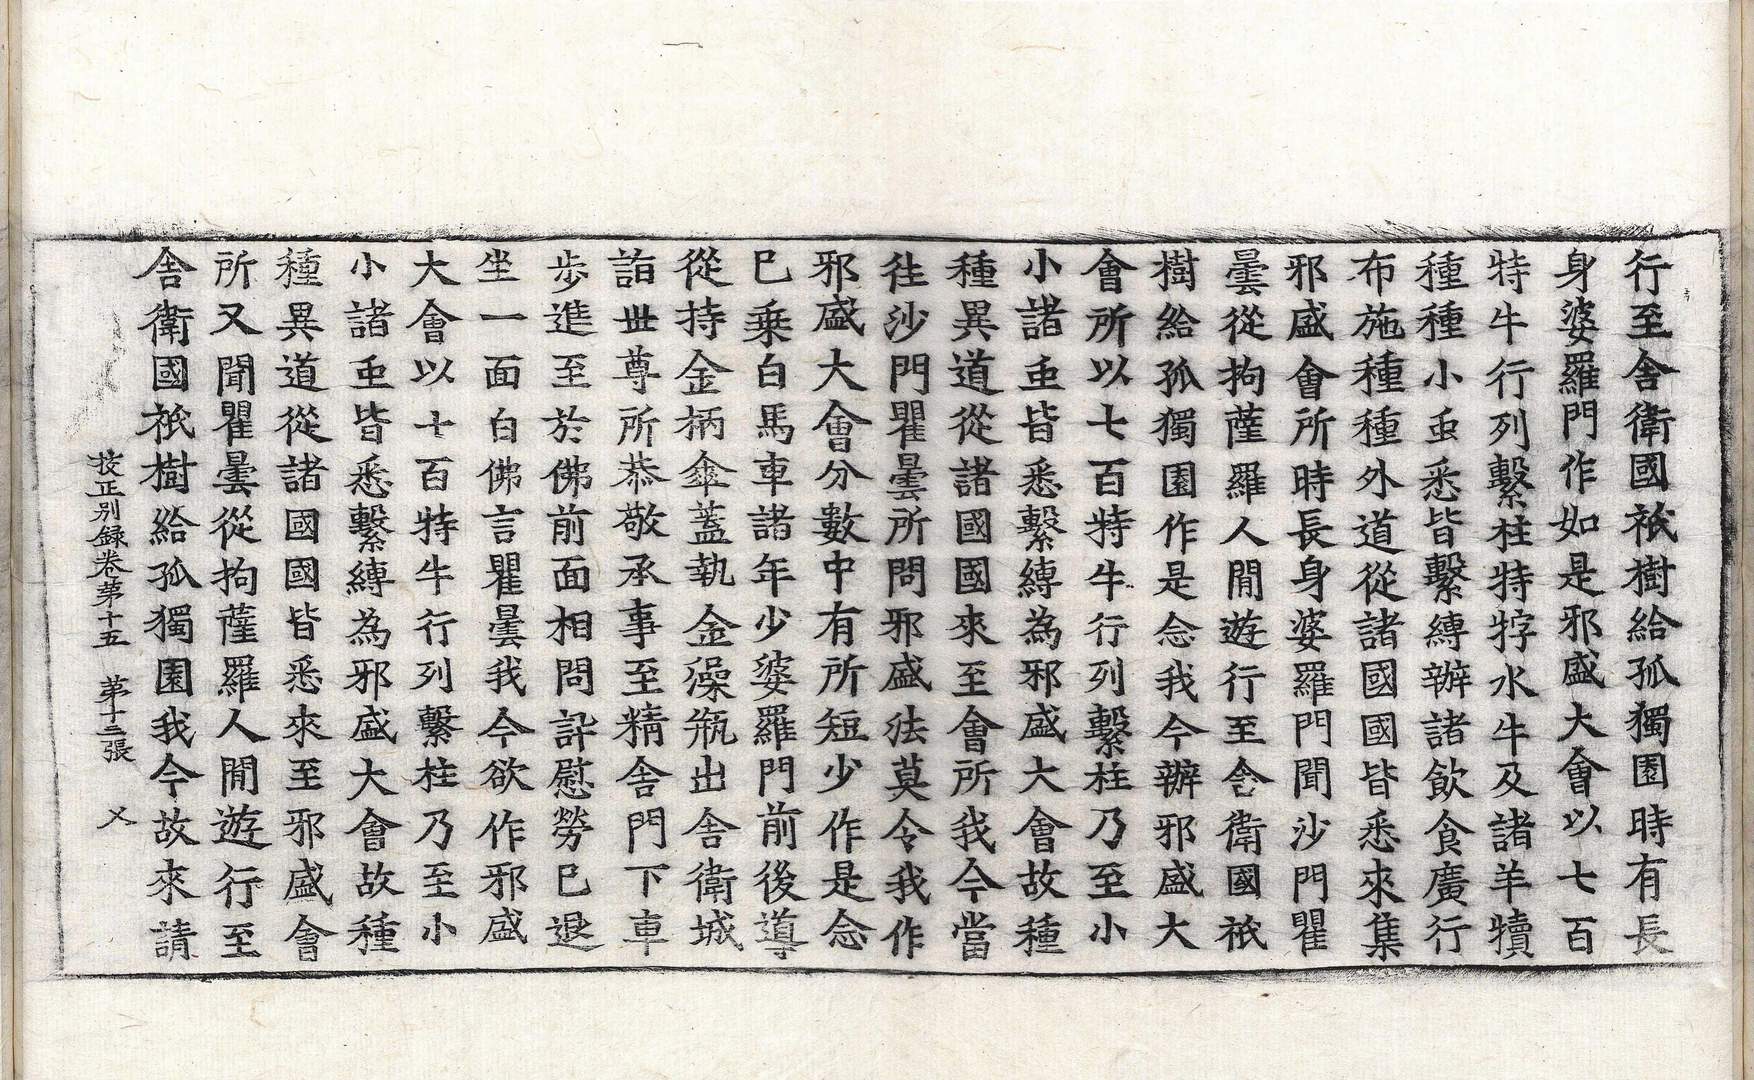 行至舎衛國祇樹給孤獨園時有長
身婆羅門作如是邪盛大會以七百
特牛行列繫柱特牸水牛及諸羊犢
種種小䖝悉皆繫縛辦諸飲食廣行
布施種種外道從諸國國皆悉來集
邪盛會所時長身婆羅門聞沙門瞿
曇從拘薩羅人閒遊行至舎衛國祇
樹給孤獨園作是念我今辦邪盛大
會所以七百特牛行列繫柱乃至小
小諸䖝皆悉繫縛為邪盛大會故種
種異道從諸國國來至會所我今當
往沙門瞿曇所問邪盛法莫令我作
邪盛大會分數中有所短少作是念
已乗白馬車諸年少婆羅門前後導
從持金柄傘蓋執金澡瓶出舎衛城
詣世尊所恭敬承事至精舎門下車
歩進至於佛前面相問訊慰勞已退
坐一面白佛言瞿曇我今欲作邪盛
大會以七百特牛行列繫柱乃至小
小諸䖝皆悉繫縛為邪盛大會故種
種異道從諸國國皆悉來至邪盛會
所又聞瞿曇從拘薩羅人閒遊行至
舎衛國祇樹給孤獨園我今故來請
校正別録卷第十五　第十三張